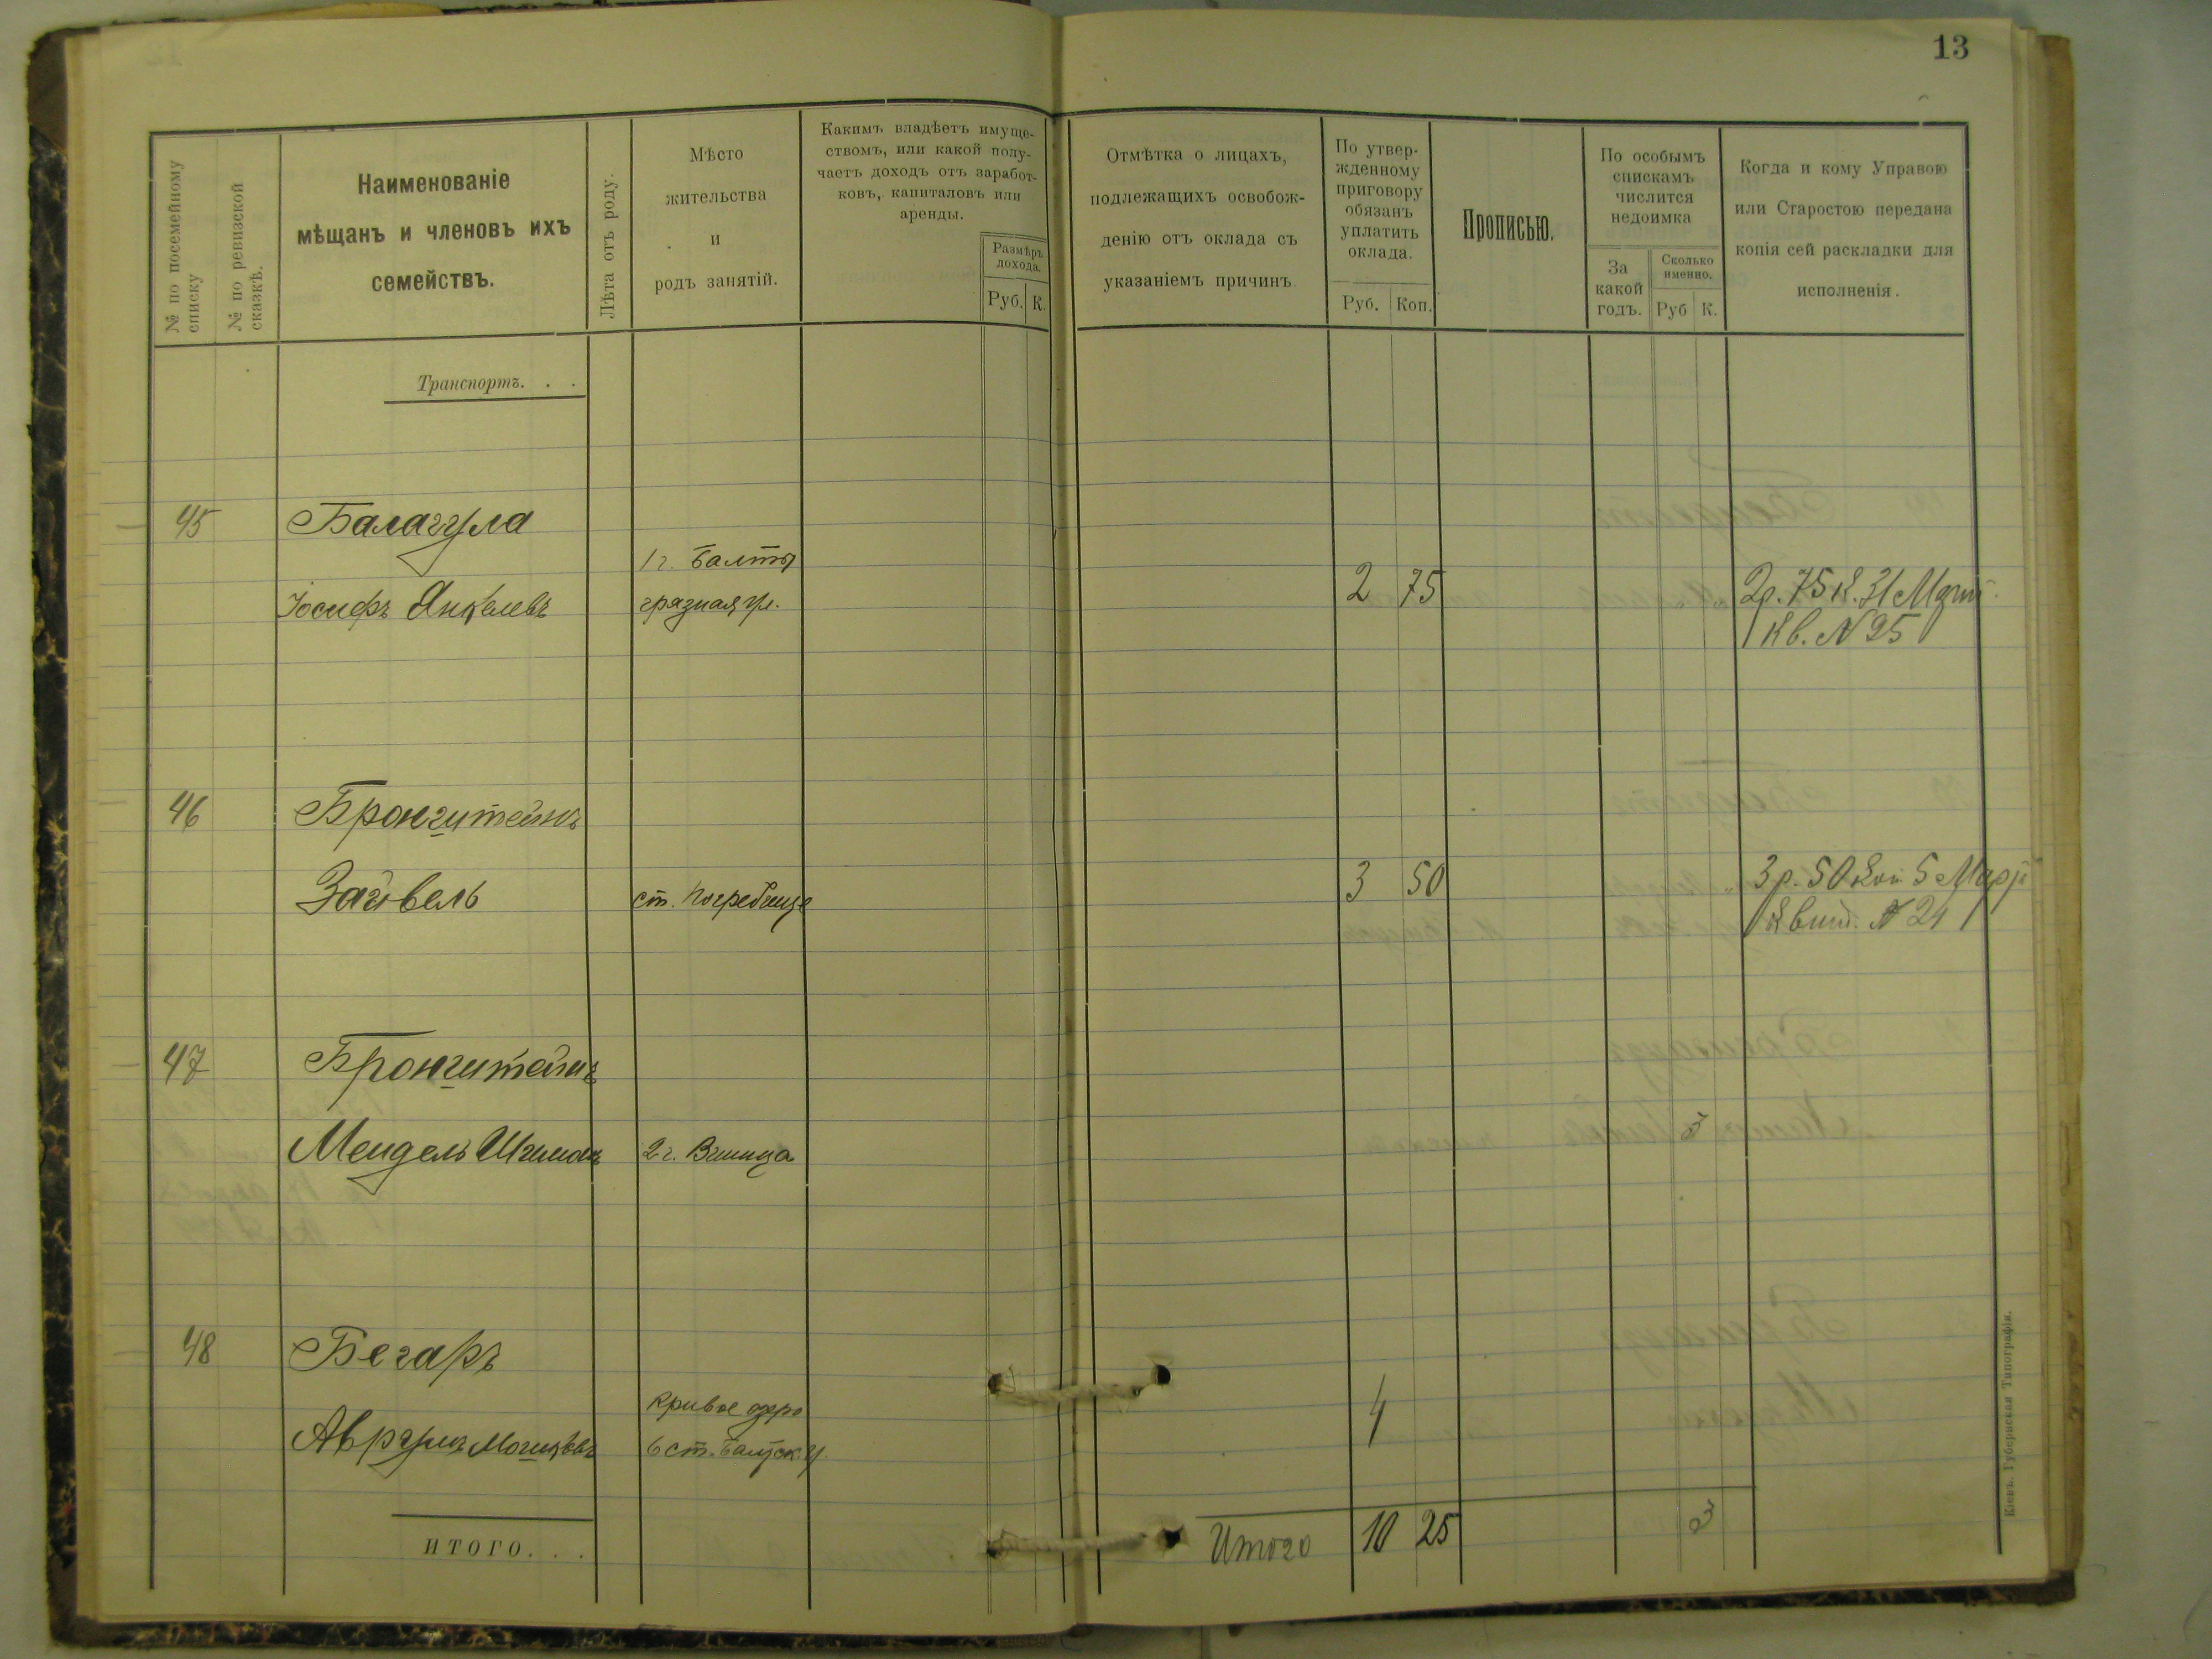 13
№ по посемейному списку
№ по ревизской сказкѣ.
Наименованіе
мѣщанъ и членовъ ихъ
семействъ.
Лѣта отъ роду.
Мѣсто
жительства
и
родъ занятій.
Какимъ владѣетъ имуще-
ствомъ, или какой полу-
чаетъ доходъ отъ заработ-
ковъ, капиталовъ или
аренды.
Размѣръ
дохода.
Руб. К.
Отмѣтка о лицахъ,
подлежащихъ освобож-
денію отъ оклада съ
указаніемъ причинъ
По утвер-
жденному
приговору
обязанъ
уплатить
оклада.
Руб. Коп.
Прописью.
По особымъ
спискамъ
числится
недоимка
За
какой
годъ.
Сколько
именно.
Руб К.
Когда и кому Управою
или Старостою передана
копія сей раскладки для
исполненія.
Транспортъ. . .
45 Балагула
1 г. Балта
Іосифъ Янкелевъ грязная ул. 2 75 2р. 75 к. 31
Кв. № 25
46 Бронштейнъ
Зайвель ст. Погребище 3 50 3 р. 50 коп 5
Квит. № 24
47 Бронштейнъ
Мендель 2 г. Винница 3
48 Бегаръ
Кривое озеро
Аврумъ Мошковъ 4
ИТОГО. . .
Итого 10 25 3
Кіевъ. Губернская Типографія.